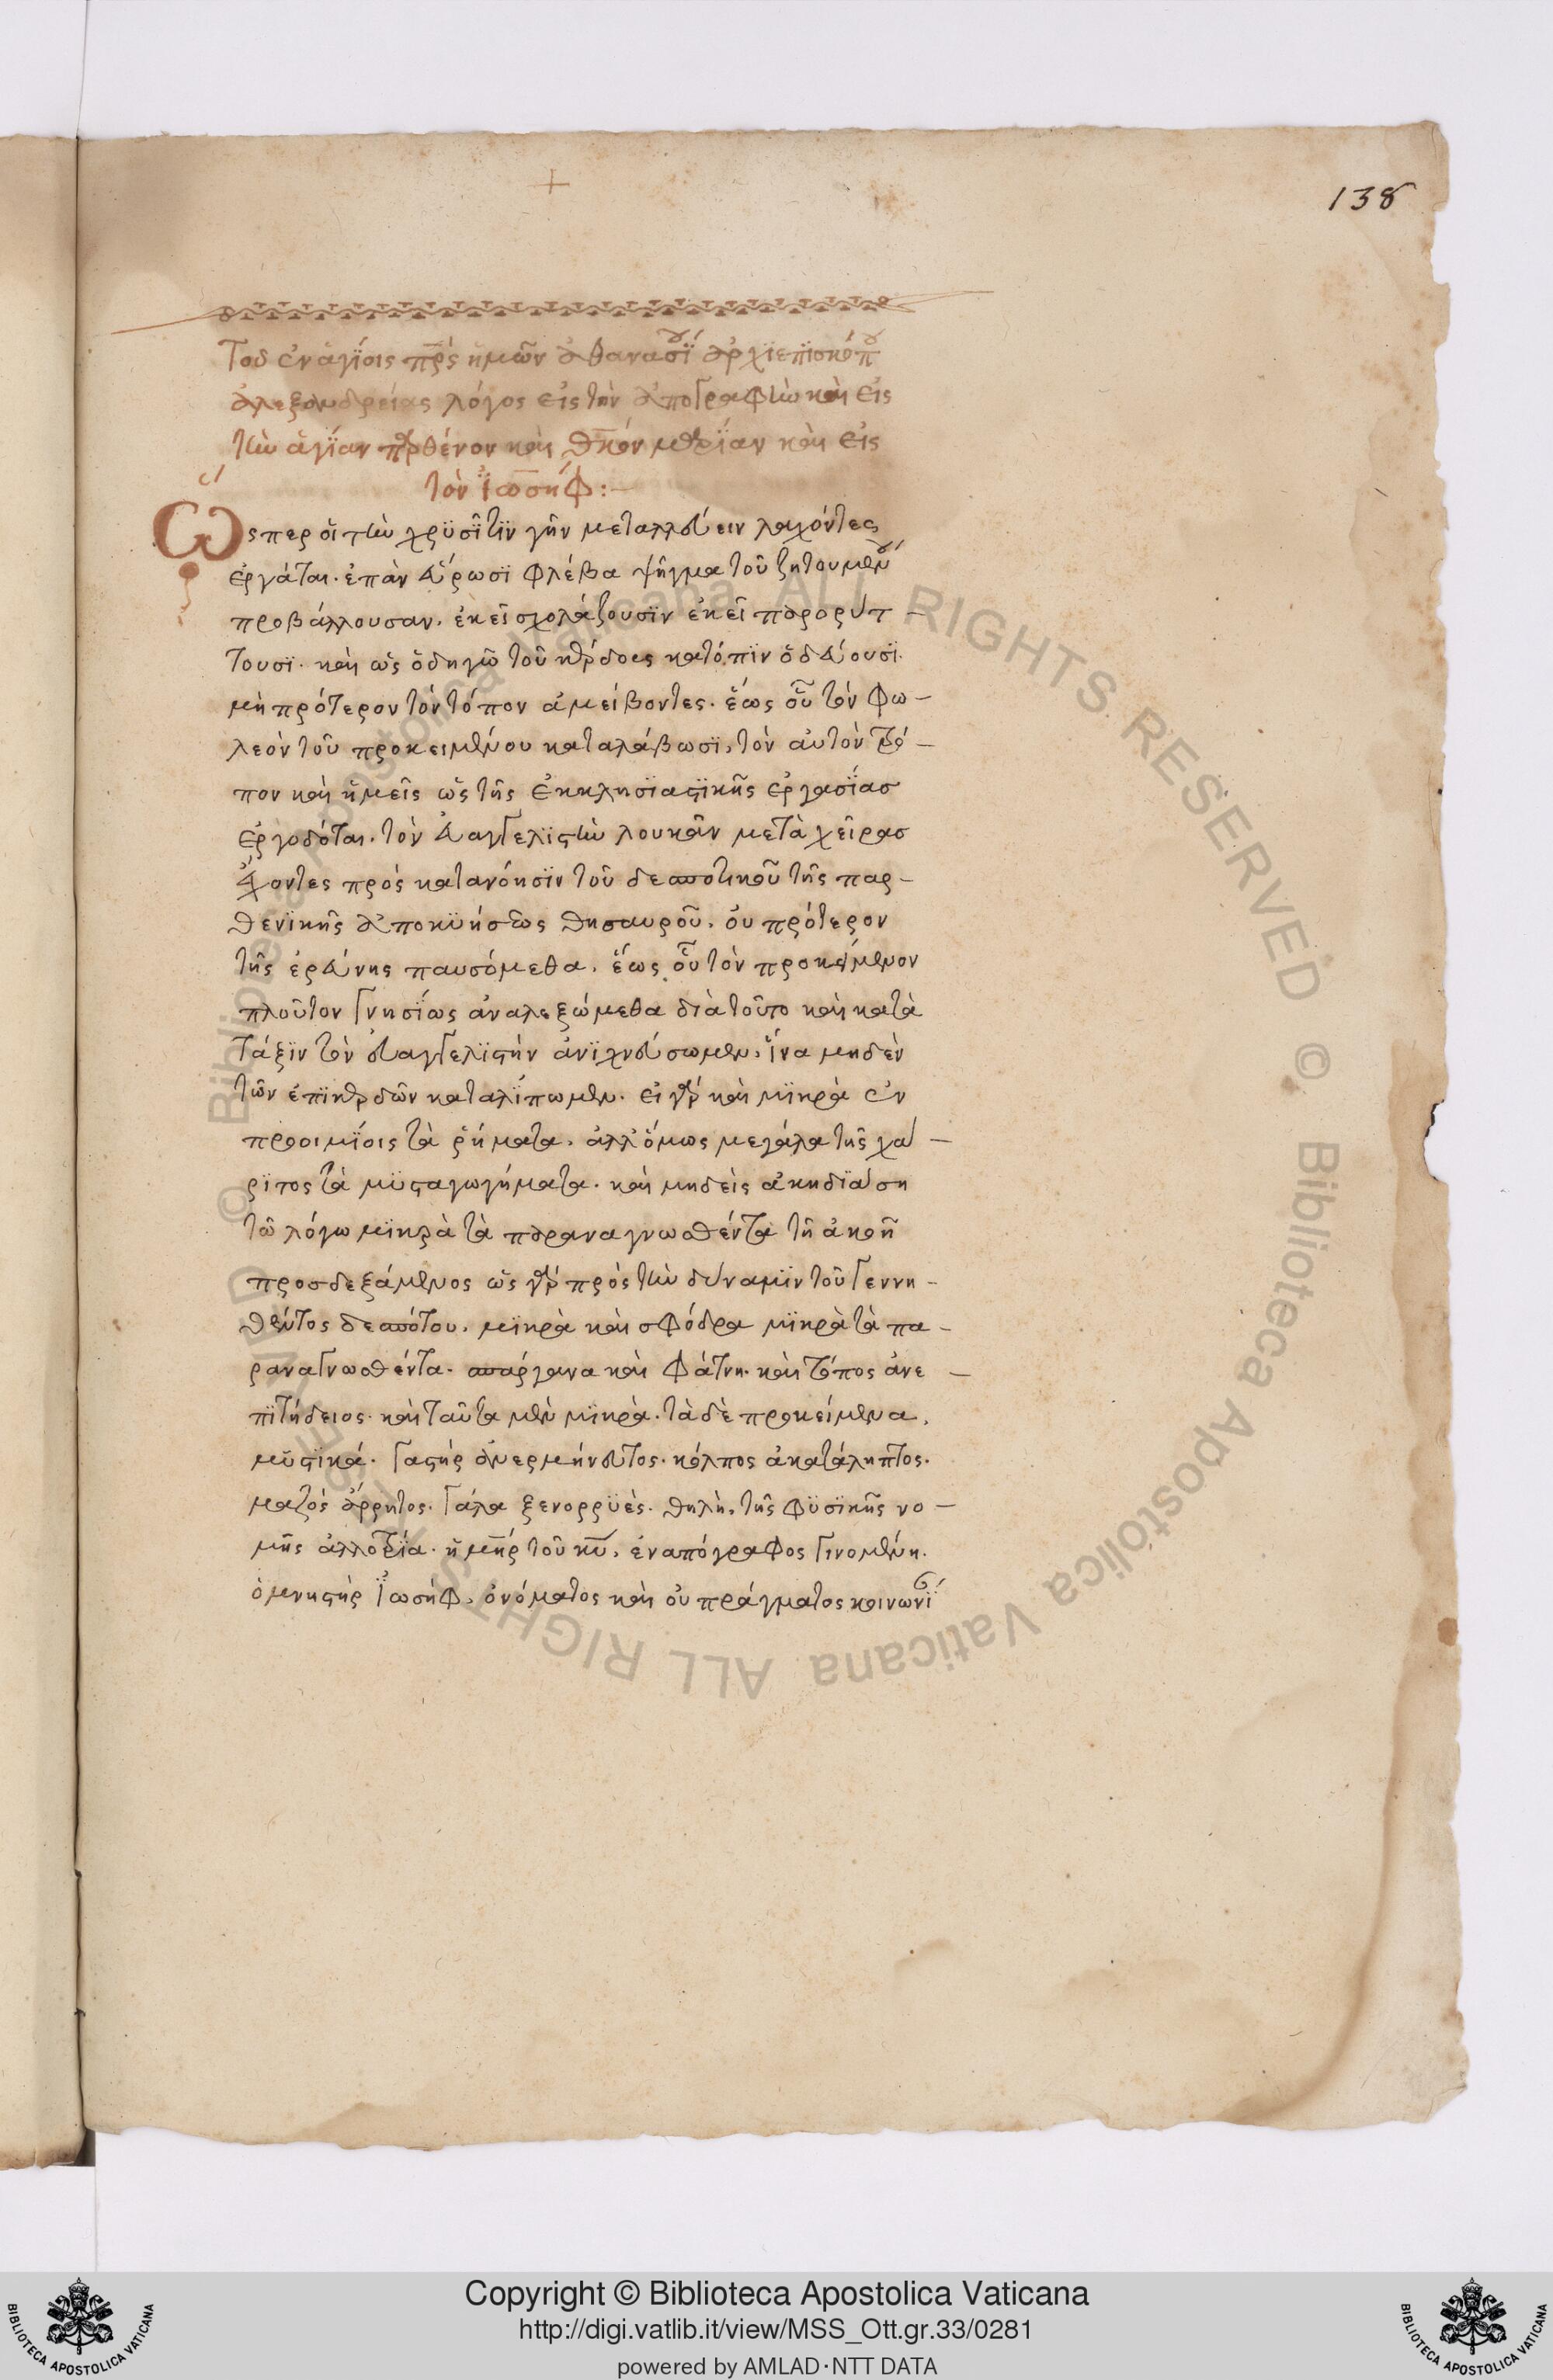 138
Τοῦ ἐν ἁγίοις πρς ἡμῶν ἀθανασΐου ἀρχϊεπϊσκόπου
ἀλεξανδρείας λόγος εἰς τὴν ἀπογραφὴν καὶ εἰς
τὴν ἁγΐαν παρθένον καὶ θκον μαρΐαν καὶ εἰς
τὸν ϊωσήφ:—
Ὥσπερ οἱ τὴν χρϋσῖτϊν γῆν μεταλλεύειν λαχόντες
ἐργάται. ἐπὰν εὕρωσϊ φλέβα ψῆγμα τοῦ ζητουμένου
προβάλλουσαν. ἐκεῖ σχολάζουσϊν ἐκεῖ παρορύτ—
τουσϊ. καὶ ὡς ὁδηγῶ τοῦ κέρδους κατόπϊν ὁδεύουσϊ.
μὴ πρότερον τὸν τόπον ἀμείβοντες. ἕως οὗ τὸν φω—
λεὸν τοῦ προκειμένου καταλάβωσϊ, τὸν αὐτὸν τρό—
πον καὶ ἡμεῖς ὡς τῆς ἐκκλησϊαστϊκῆς ἐργασΐας
ἐργοδόται. τὸν εὐαγγελϊστὴν λουκᾶν μετὰ χεῖρας
ἔχοντες πρὸς κατανόησϊν τοῦ δεσποτικοῦ τῆς παρ—
θενϊκῆς ἀποκϋήσεως θησαυροῦ. οὐ πρότερον
τῆς ἐρεύνης παυσόμεθα. ἕως οὗ τὸν προκείμενον
πλοῦτον γνησΐως ἀναλεξώμεθα διὰ τοῦτο καὶ κατὰ
τάξϊν τὸν εὐαγγελϊστὴν ἀνϊχνεύσωμεν. ἵνα μηδὲν
τῶν ἐπϊκερδῶν καταλΐπωμεν. εἰ γὰρ καὶ μϊκρὰ ἐν
προοιμΐοις τὰ ῥήματα. ἀλλ' ὅμως μεγάλα τῆς χά—
ρϊτος τὰ μϋσταγωγήματα. καὶ μηδεὶς ἀκηδϊάση
τῶ λόγω μϊκρὰ τὰ παραναγνωσθέντα τῆ ἀκοῆ
προσδεξάμενος ὡς γὰρ πρὸς τὴν δύναμϊν τοῦ γεννη—
θέντος δεσπότου. μϊκρὰ καὶ σφόδρα μϊκρὰ τὰ πα—
ραναγνωσθέντα. σπάργανα καὶ φάτνη. καὶ τόπος ἀνε—
πϊτήδειος. καὶ ταῦτα μὲν μϊκρὰ. τὰ δὲ προκείμενα,
μϋστϊκά. γαστὴρ ἀνερμήνευτος. κόλπος ἀκατάληπτος.
μαζὸς ἄρρητος. γάλα ξενορρϋὲς. θηλὴ, τῆς φϋσϊκῆς νο—
μῆς ἀλλοτρΐα. ἡ μηρ τοῦ κυ, ἐναπόγραφος γινομένη.
ὁ μνηστὴρ ϊωσὴφ, ὀνόματος καὶ οὐ πράγματος κοινωνΐ
Copyright © Biblioteca Apostolica Vaticana
http://digi.vatlib.it/view/MSS_Ott.gr.33/0281
powered by AMLAD·NTT DATA